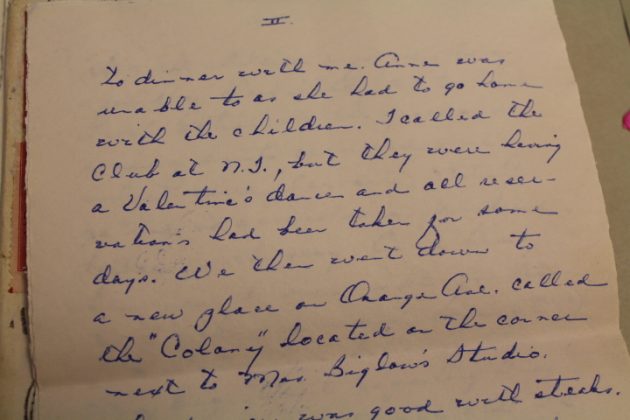 II.
to dinner with me. Anne was
unable to as she had to go home
with the children. I called the
Club at N.I., but they were having
a Valentine's dance and all reser-
vations had been taken for some
days. We then went down to
a new place on Orange Ave. called
the "Colony" located on the corner
next to Mrs. Biglow's Studio.
was good with steaks.